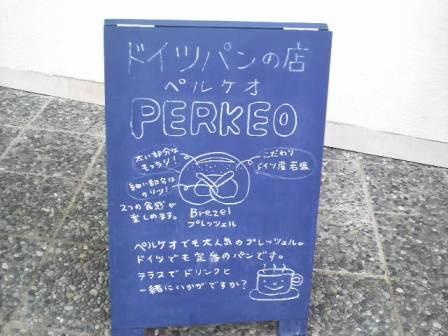 ドイツパンの店
ペルケオ
PERKEO
太い部分は
モッチリ!
こだわり
ドイツ産岩塩
細い部分は
カリッ!
2つの食感が
楽しめます。
Brezel
プレッツェル
ペルケオでも大人気のプレッツェル。
ドイツでも定番のパンです。
テラスでドリンクと
一緒にいかがですか?